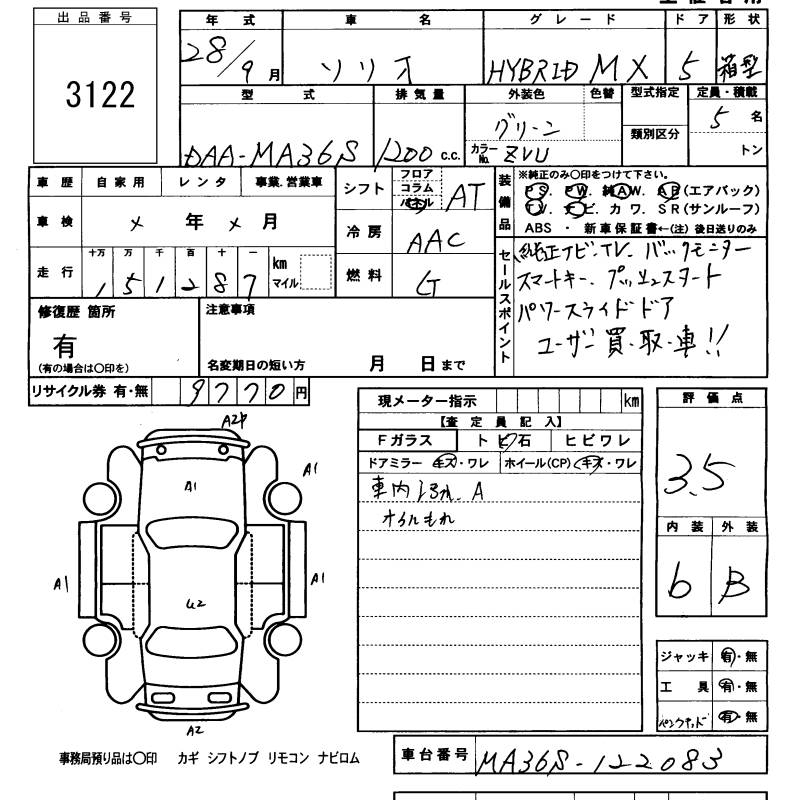 出品番号
3122
年式 車名 グレード ドア 形状
28/9月 ソリオ HYBRID MX 5 箱型
型式 排気量 外装色 色替 型式指定 定員・積載
DAA-MA36S 1200 c.c. グリーン 5名
カラーNo. ZVU 類別区分 トン
車歴 自家用 レンタ 事業.営業車
車検 × 年 × 月
走行 十万 万 千 百 十 一 km マイル
1 5 1 2 8 7
シフト フロア コラム パネル AT
冷房 AAC
燃料 G
装備品
※純正のみ〇印をつけて下さい。
PS. PW. 純AW. AB(エアバック)
TV. ナビ. カワ. SR(サンルーフ)
ABS ・ 新車保証書←(注)後日送りのみ
セールスポイント
純正ナビ.TV. バックモニター
スマートキー. プッシュスタート
パワースライドドア
ユーザー買・取・車!!
修復歴 箇所
有
(有の場合は〇印を)
注意事項
名変期日の短い方 月 日まで
リサイクル券 有・無 9770円
現メーター指示 km
【査定員記入】
Fガラス トビ石 ヒビワレ
ドアミラー キズ・ワレ ホイール(CP) キズ・ワレ
車内よごれ. A
オイルもれ
評価点
3.5
内装 外装
b B
A1
A1
A1
A1
A2
ジャッキ 有・無
工具 有・無
パンクキッド 有・無
事務局預り品は〇印 カギ シフトノブ リモコン ナビロム
車台番号 MA36S-122083